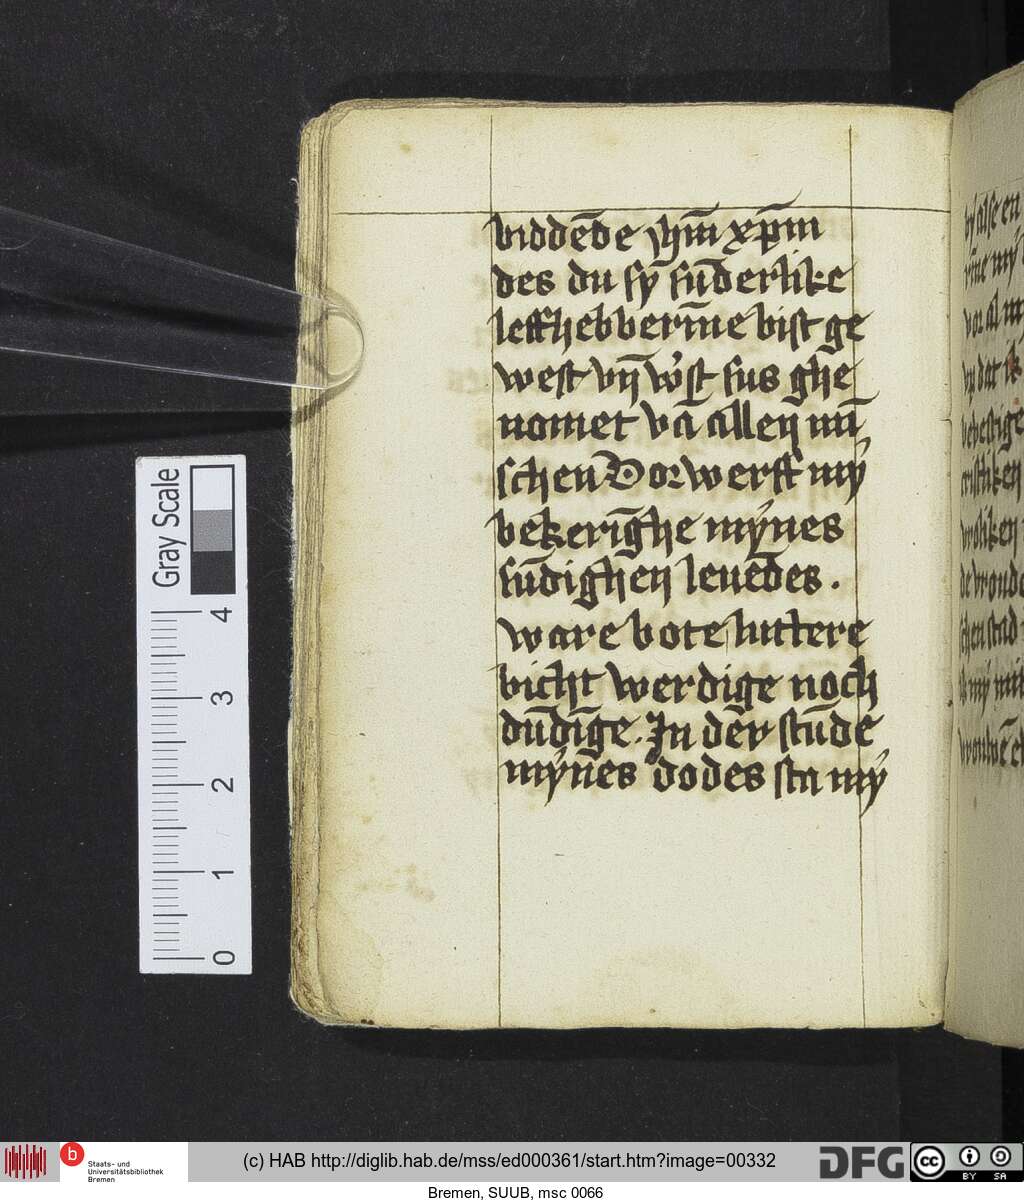 biddēde yhm̄ xp̄m
des du sy sūderlike
leffhebberīne bist ge
west vn̄ w'st sus ghe
nomet vā allen mī
schen Dor werff my
bekerīghe mynes
sūdighen leuēdes .
ware bote luttere
bicht werdige noch
dūdīge . In der stūde
mynes dodes sta my
Gray Scale
4
3
2
1
0
b
Staats- und
Universitätsbibliothek
Bremen
(c) HAB http://diglib.hab.de/mss/ed000361/start.htm?image=00332
DFG
cc
BY SA
Bremen, SUUB, msc 0066